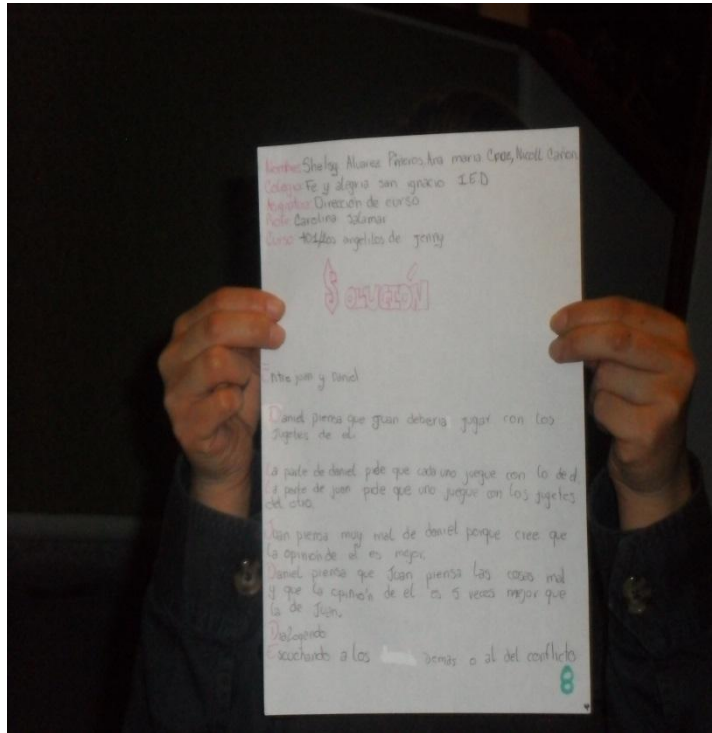 Nombre: Shelsy Alvarez Piñeros, Ana maria Cruz, Nicoll Cañon
Colegio: Fe y alegria san ignacio IED
Asignatura: Dirección de curso
Profe: Carolina Salamar
Curso: 401/los angelitos de jenny
SOLUCIÓN
Entre juan y Daniel
Daniel piensa que Juan deberia jugar con los
jugetes de el.
La parte de daniel pide que cada uno juegue con lo de el.
La parte de juan pide que uno juegue con los jugetes
del otro.
Juan piensa muy mal de daniel porque cree que
la opinion de el es mejor.
Daniel piensa que Juan piensa las cosas mal
y que la opinión de el es 5 veces mejor que
la de Juan.
Dialogando
Escuchando a los demás o al del conflicto
8